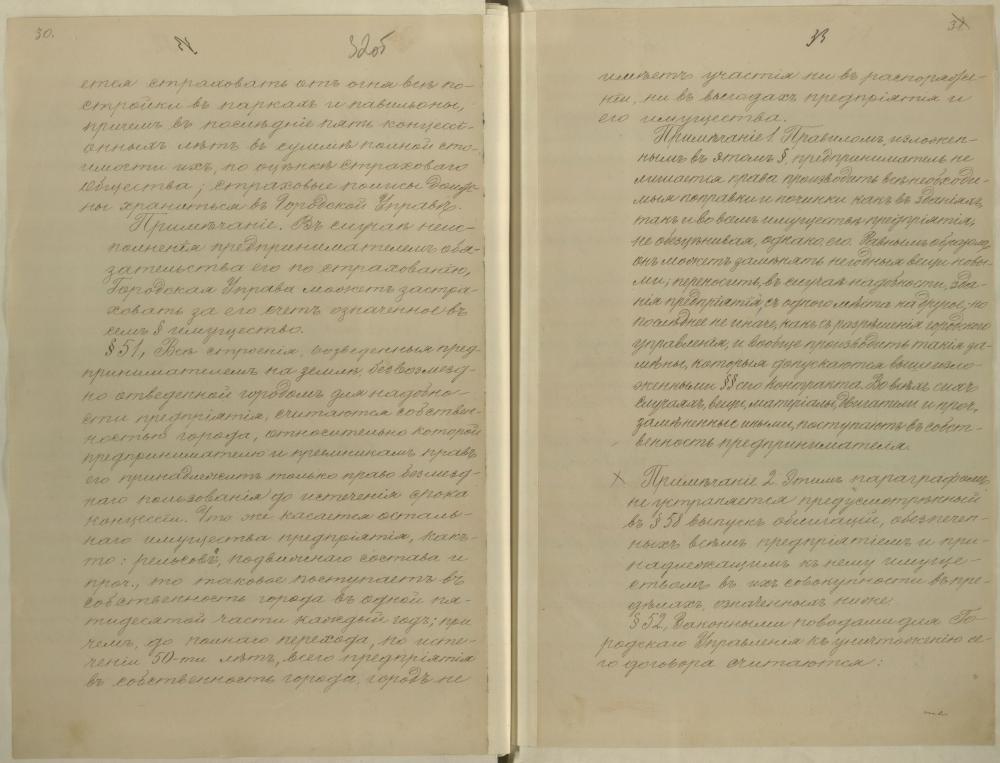 30.
32об
ется страховать отъ огня всѣ по-
стройки въ паркахъ и павильоны,
причемъ въ послѣдніе пять концесс-
онныхъ лѣтъ въ суммѣ полной сто-
имости ихъ, по оцѣнкѣ страховаго
общества; страховые полисы долж-
ны храниться въ Городской Управѣ.
Примѣчаніе. Въ случаѣ неис-
полненія предпринимателемъ обя-
зательства его по страхованію,
Городская Управа можетъ застра-
ховать за его счетъ означенное въ
семъ § имущество.
§ 51, Всѣ строенія, возведенныя пред-
принимателемъ на землѣ, безвозмезд-
но отведенной городомъ для надобно-
сти предпріятія, считаются собствен-
ностью города, относительно которой
предпринимателю и преемникамъ правъ
его принадлежитъ только право безмезд-
наго пользованія до истеченія срока
концессіи. Что же касается осталь-
наго имущества предпріятія, какъ-
то: рельсовъ, подвижнаго состава и
проч., то таковое поступаетъ въ
собственность города въ одной пя-
тидесятой части каждый годъ; при
чемъ, до полнаго перехода, по исте-
ченіи 50-ти лѣтъ, всего предпріятія
въ собственность города, городъ не
33
31
имѣетъ участія ни въ распоряже-
ніи, ни въ выгодахъ предпріятія и
его имущества.
Примѣчаніе 1. Правиломъ, изложен-
нымъ въ этомъ §, предприниматель не
лишается права производить всѣ необходи-
мыя поправки и починки какъ въ зданіяхъ,
такъ и во всемъ имуществѣ предпріятія,
не обезцѣнивая, однако, его. Равнымъ образомъ,
онъ можетъ замѣнять негодныя вещи новы-
ми; переносить, въ случаѣ надобности, зда-
нія предпріятія съ одного мѣста на другое, но
послѣднее не иначе, какъ съ разрѣшенія городского
управленія, и вообще производить такія за-
мѣны, которыя допускаются вышеизло-
женными §§ сего контракта. Во всѣхъ сихъ
случаяхъ, вещи, матеріалы, двигатели и проч.,
замѣненные иными, поступаютъ въ собст-
венность предпринимателя.
Х Примѣчаніе 2. Этимъ параграфомъ
не устраняется предусмотрѣнный
въ § 58 выпускъ облигацій, обезпечен-
ныхъ всѣмъ предпріятіемъ и при-
надлежащимъ къ нему имуще-
ствомъ въ ихъ совокупности въ пре-
дѣлахъ, означенныхъ ниже.
§ 52, Законными поводами для Го-
родскаго Управленія къ уничтоженію се-
го договора считаются: